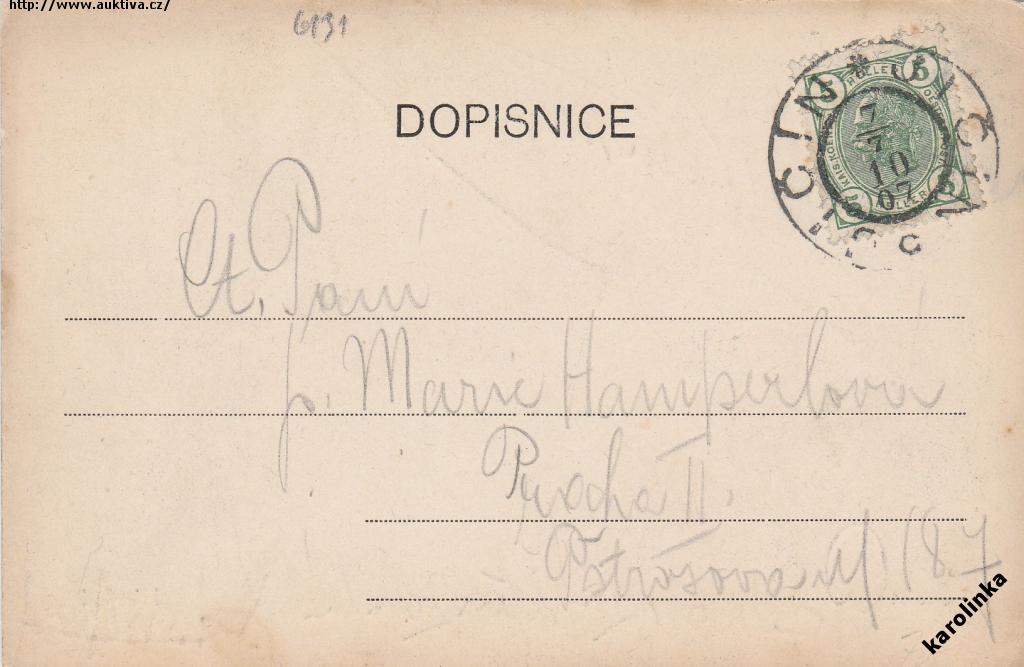 http://www.auktiva.cz/
6131
DOPISNICE
JIČÍN * JIČIN
7/7
10
07
5 HELLER 5
Ct. Paní
p. Marie Hamperlová
Praha II.
Pštrosova ul 187
karolinka